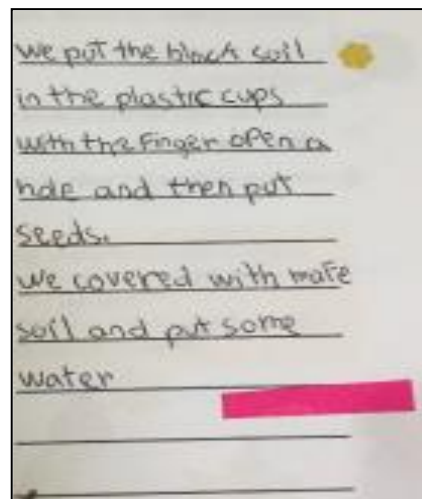 we put the black soil
in the plastic cups
with the finger open a
hole and then put
seeds.
we covered with more
soil and put some
water